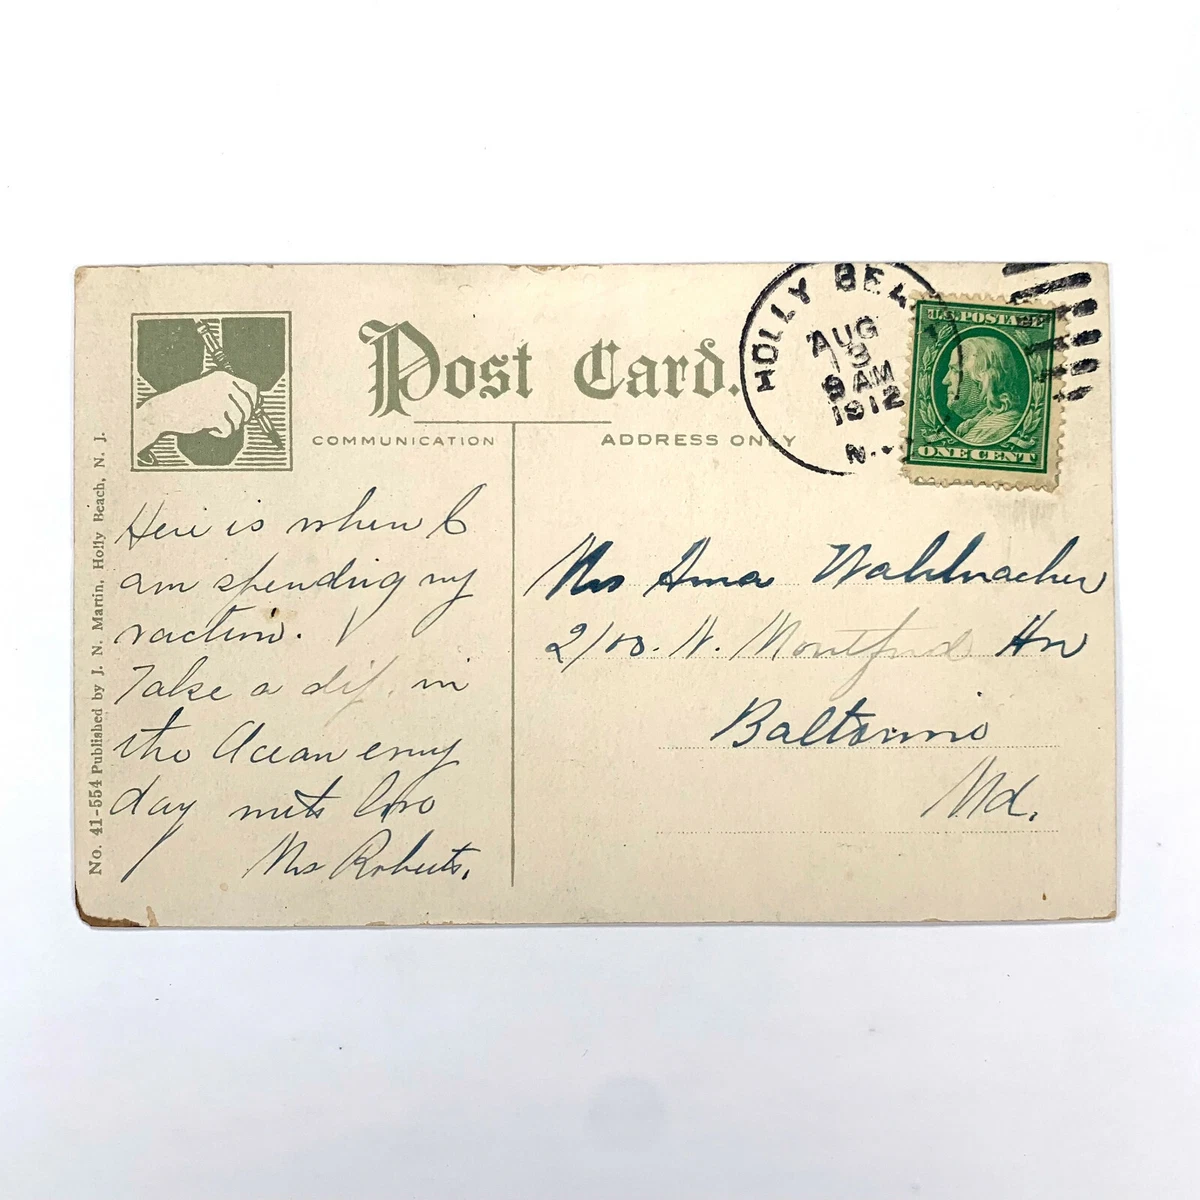 Post Card.
COMMUNICATION
ADDRESS ONLY
HOLLY BEA
AUG
13
9 AM
1912
N.
U.S. POSTAGE
ONE CENT
No. 41-554 Published by J. N. Martin, Holly Beach, N. J.
Here is when I
am spending my
vaction.
Take a dif. in
the Ocean
day love
Mrs Roberts.
Mrs
2100. N. Montford
Baltornio
Md.